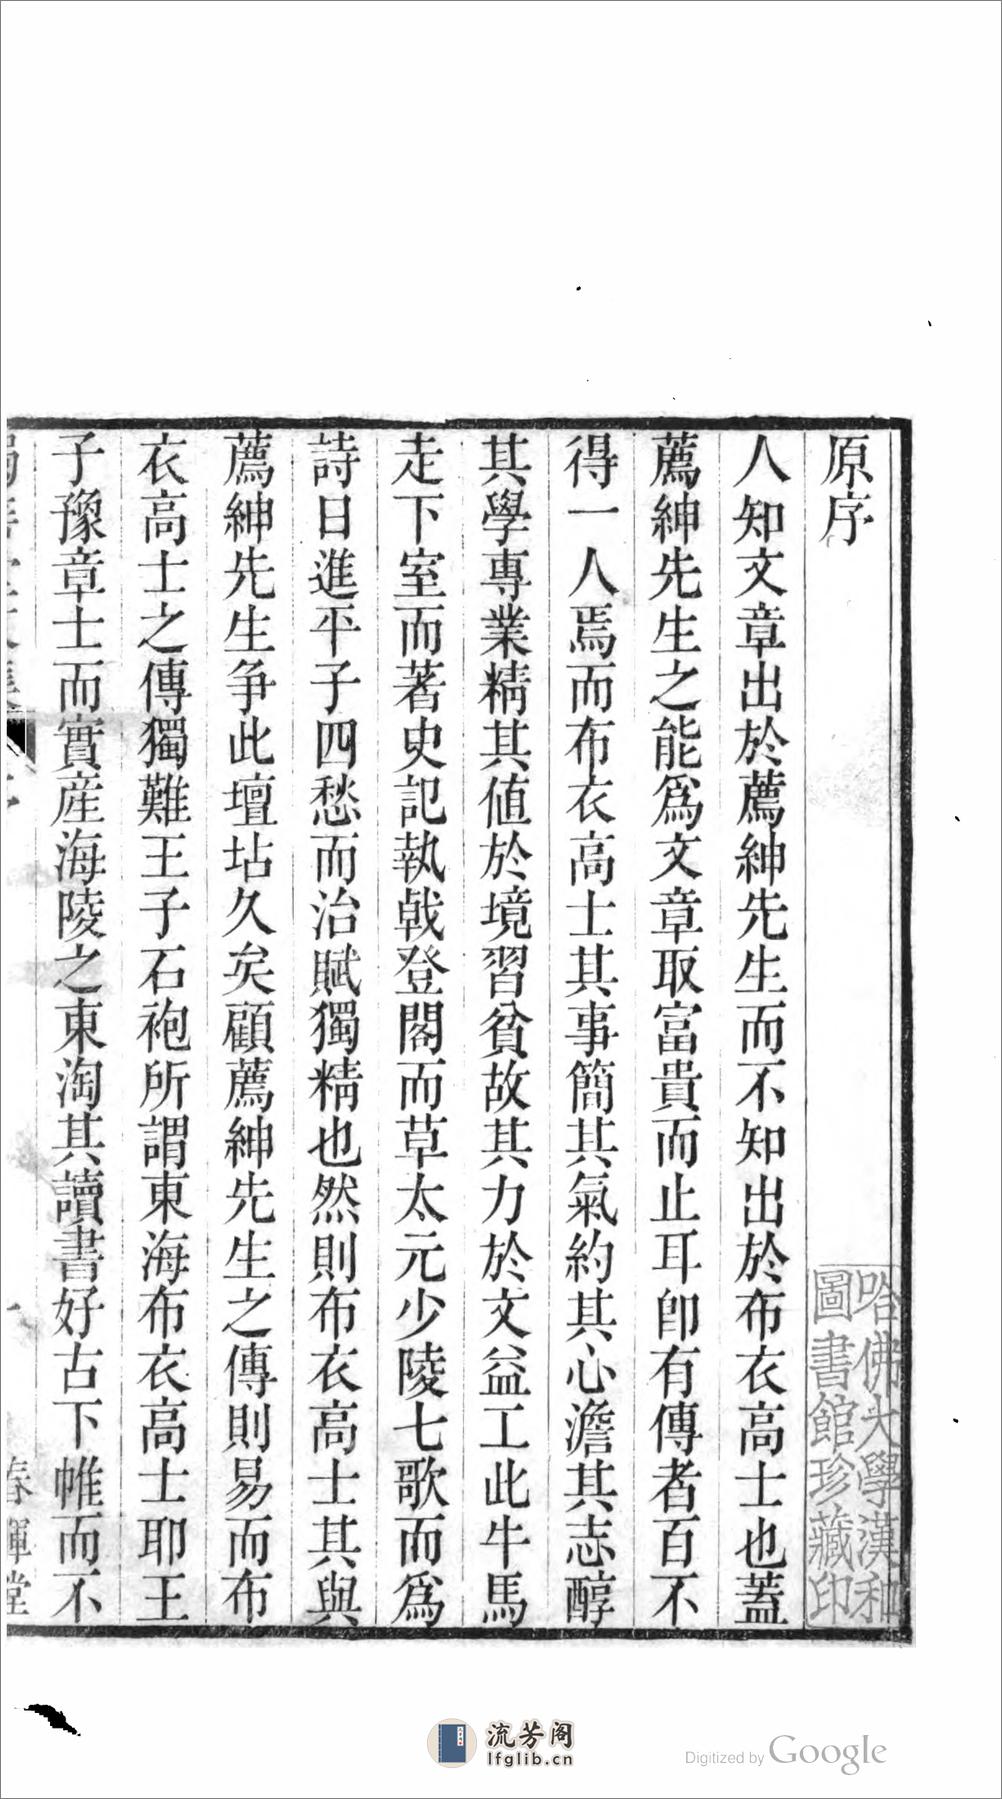 原序
人知文章出於薦紳先生而不知出於布衣高士也蓋
薦紳先生之能爲文章取富貴而止耳卽有傳者百不
得一人焉而布衣高士其事簡其氣約其心澹其志醇
其學專業精其値於境習貧故其力於文益工此牛馬
走下室而著史記執戟登閣而草太元少陵七歌而爲
詩日進平子四愁而治賦獨精也然則布衣高士其與
薦紳先生争此壇坫久矣顧薦紳先生之傳則易而布
衣高士之傳獨難王子石袍所謂東海布衣高士耶王
子豫章士而實産海陵之東淘其讀書好古下帷而不
春暉堂
哈佛大學漢和
圖書館珍藏印
流芳阁
lfglib.cn
Digitized by Google